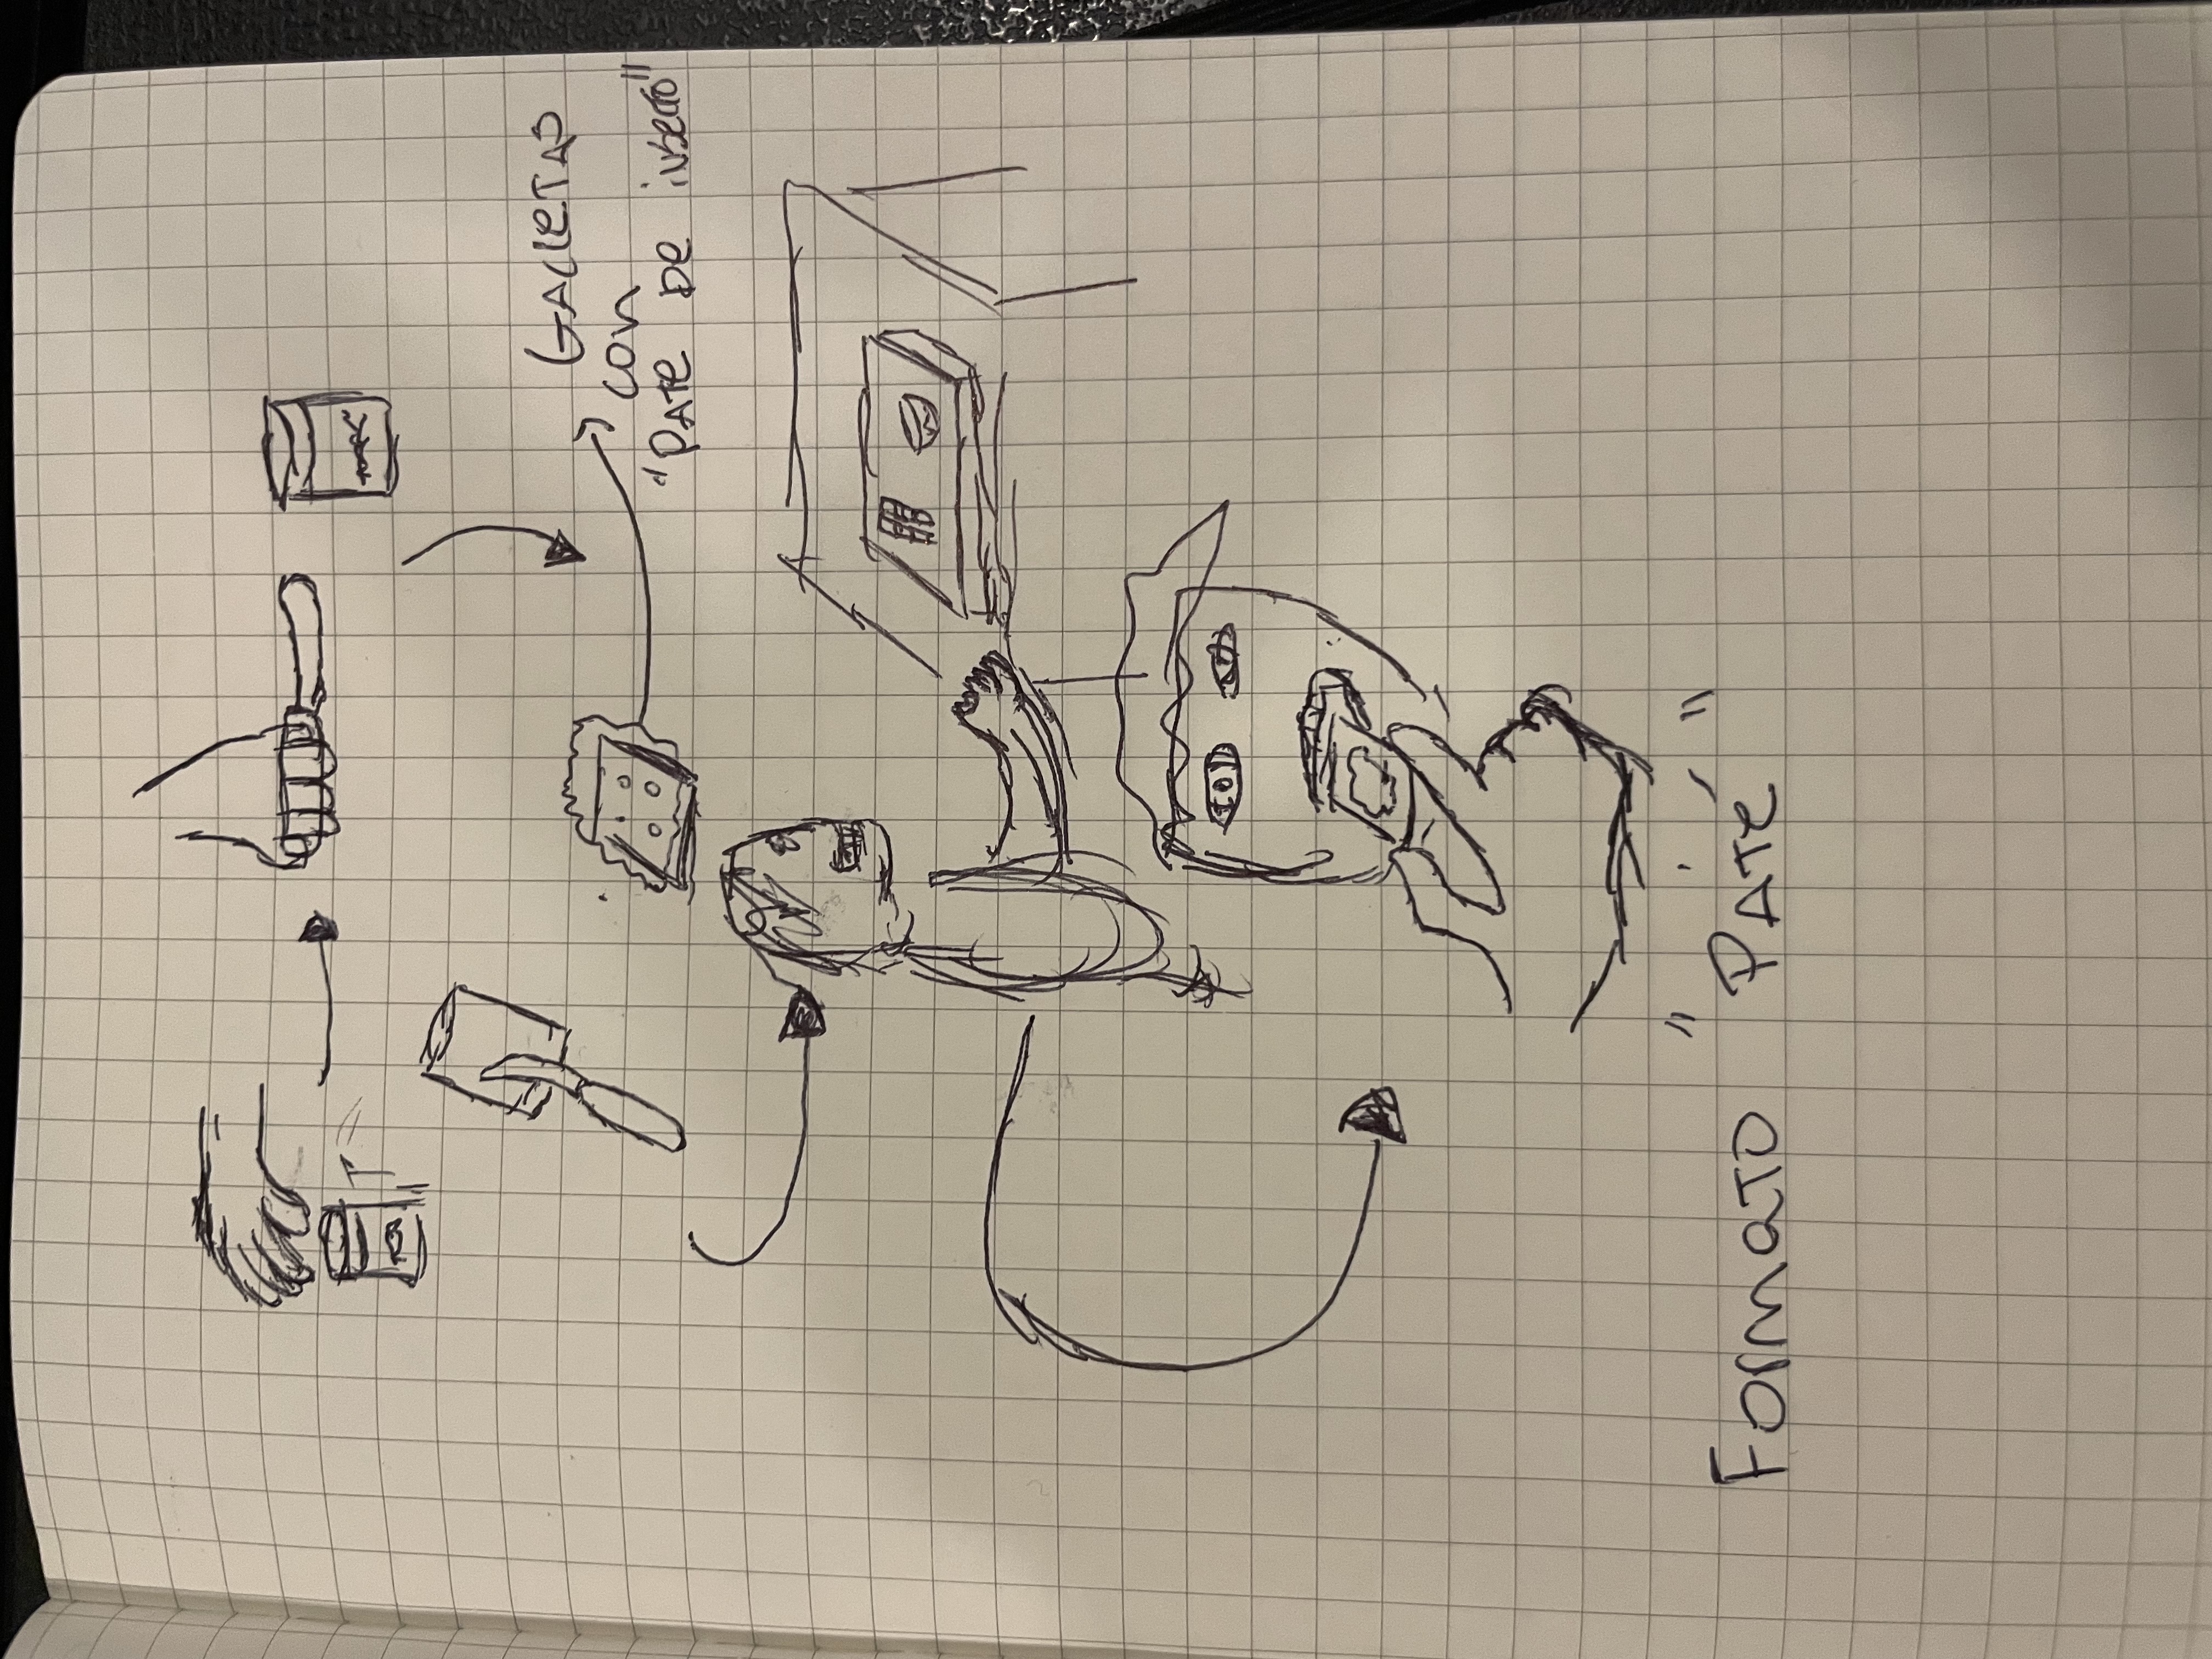 GALLETAS
con
"PATE DE insecto"
Formato "PATÉ"